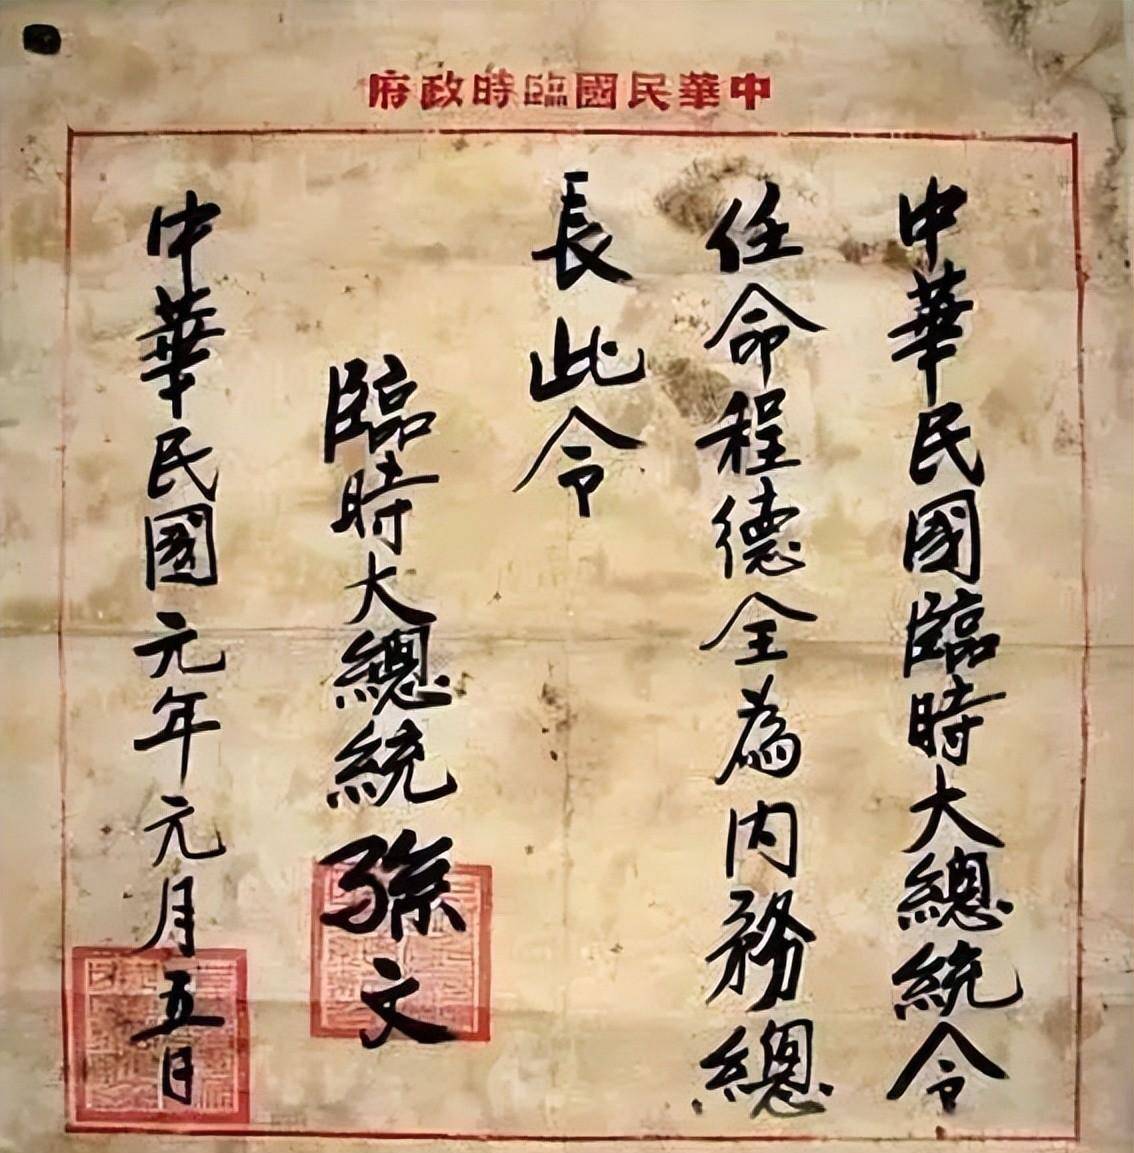 中華民國臨時政府
中華民國臨時大總統令
任命程德全為內務總
長此令
臨時大總統孫文
中華民國元年元月五日